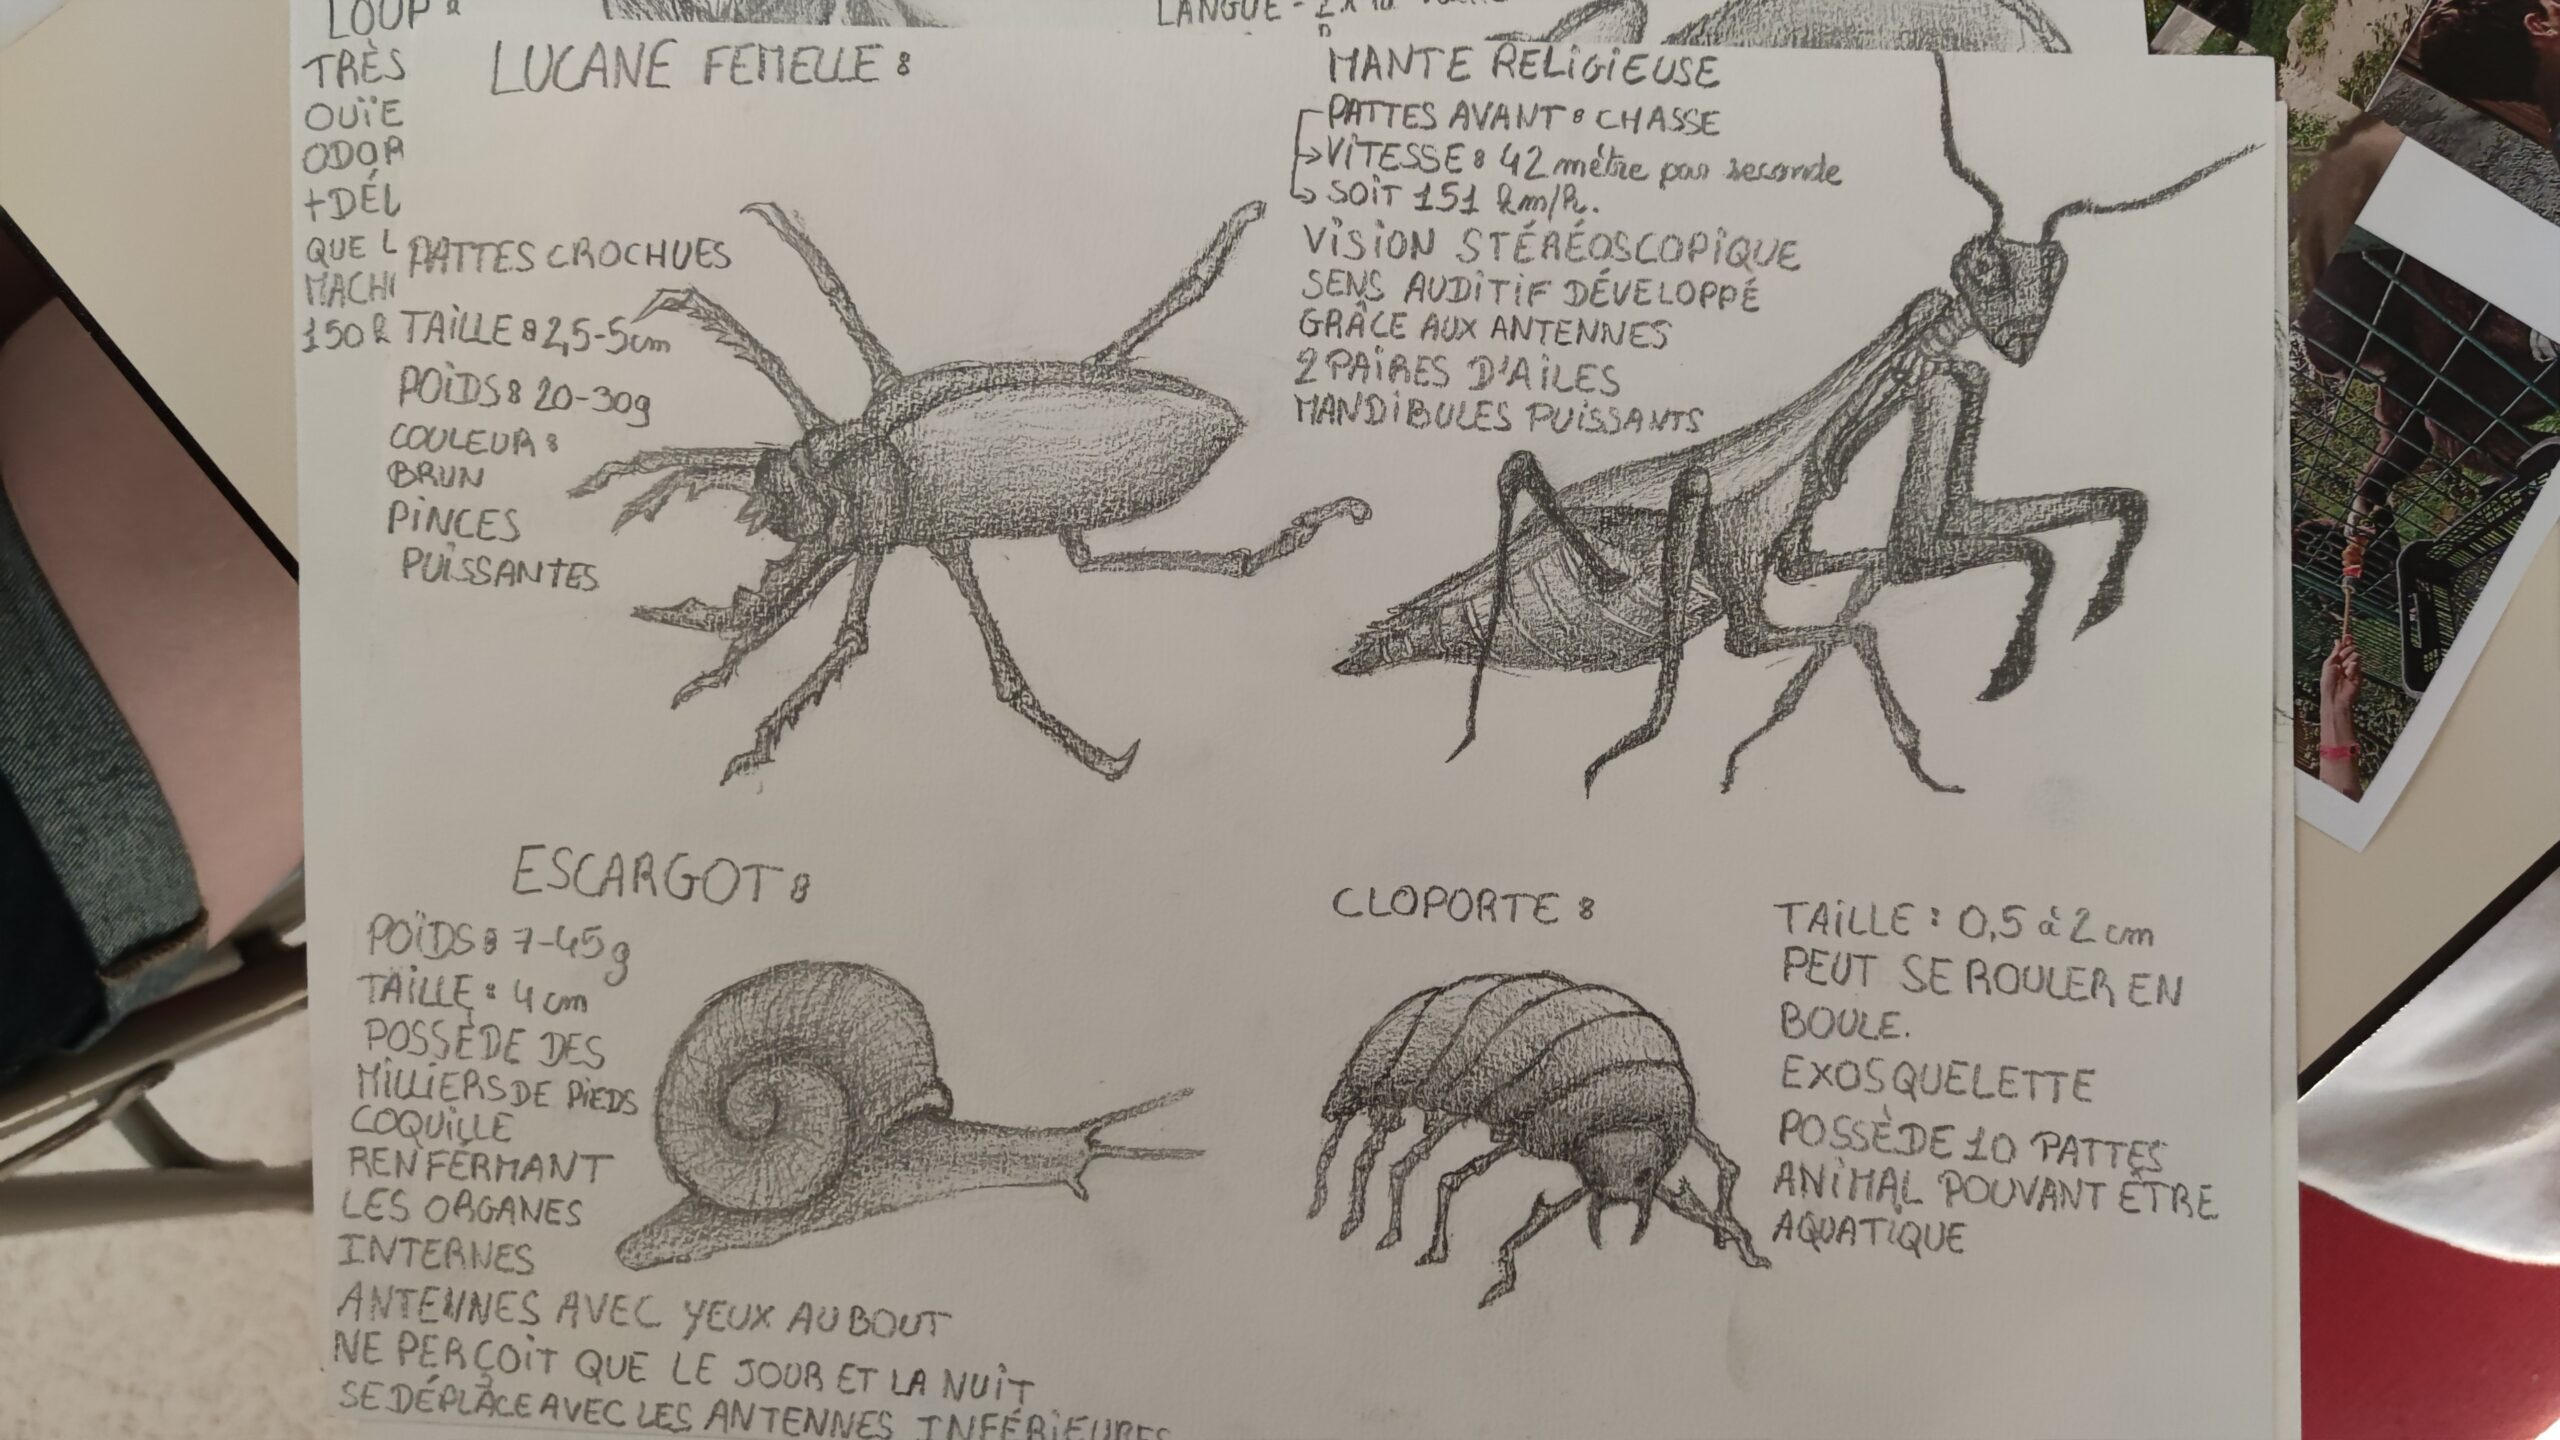 LOUP :
TRÈS
OUÏE
ODOR
+DÉL
QUE L
MACHI
150 k
LANGUE -
LUCANE FEMELLE :
PATTES CROCHUES
TAILLE : 2,5-5cm
POIDS : 20-30g
COULEUR :
BRUN
PINCES
PUISSANTES
MANTE RELIGIEUSE
PATTES AVANT : CHASSE
VITESSE : 42 mètre par seconde
SOIT 151 km/h.
VISION STÉRÉOSCOPIQUE
SENS AUDITIF DÉVELOPPÉ
GRÂCE AUX ANTENNES
2 PAIRES D'AILES
MANDIBULES PUISSANTS
ESCARGOT :
POÏDS : 7-45g
TAILLE : 4 cm
POSSÈDE DES
MILLIERS DE PIEDS
COQUILLE
RENFERMANT
LES ORGANES
INTERNES
ANTENNES AVEC YEUX AU BOUT
NE PERÇOIT QUE LE JOUR ET LA NUIT
SE DÉPLACE AVEC LES ANTENNES INFÉRIEURES
CLOPORTE :
TAILLE : 0,5 à 2 cm
PEUT SE ROULER EN
BOULE.
EXOSQUELETTE
POSSÈDE 10 PATTES
ANIMAL POUVANT ÊTRE
AQUATIQUE